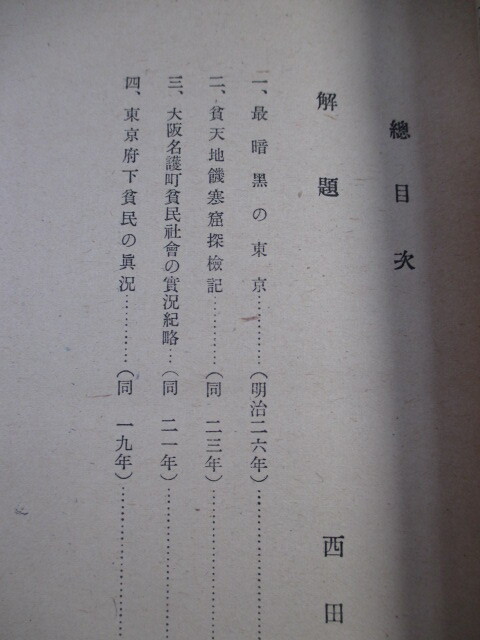 總目次
解題 西田
一、最暗黑の東京…………(明治二六年)………………
二、貧天地饑寒窟探檢記…………(同 二三年)………………
三、大阪名護町貧民社會の實況紀略…(同 二一年)………………
四、東京府下貧民の眞況…………(同 一九年)………………